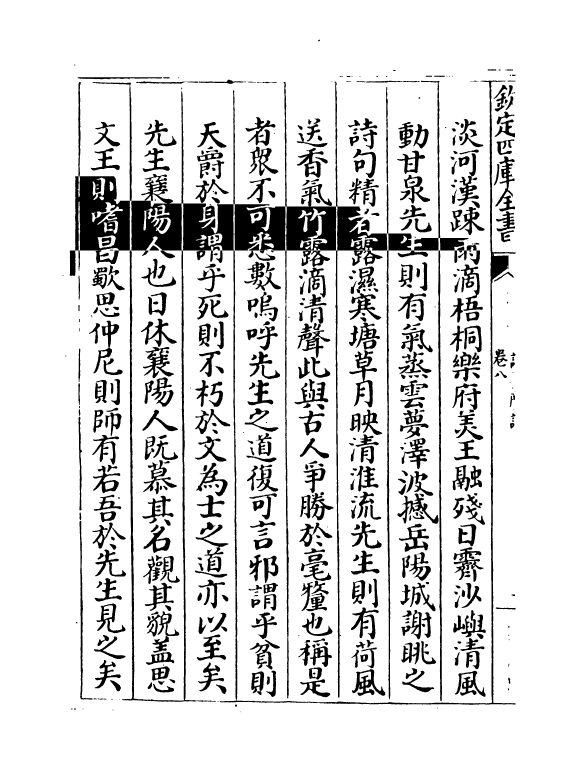 欽定四庫全書
卷八
淡河漢踈雨滴梧桐樂府美王融殘日霽沙嶼清風
動甘泉先生則有氣蒸雲夢澤波撼岳陽城謝朓之
詩句精者露濕寒塘草月映清淮流先生則有荷風
送香氣竹露滴清聲此與古人爭勝於毫釐也稱是
者眾不可悉數嗚呼先生之道復可言邪謂乎貧則
天爵於身謂乎死則不朽於文為士之道亦以至矣
先生襄陽人也日休襄陽人既慕其名觀其貌盖思
文王則嗜昌歜思仲尼則師有若吾於先生見之矣